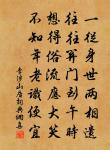 一從身世兩相遺
往往關門到午時
想得俗流應大笑
不知年老識便宜
李涉山居詞典網集